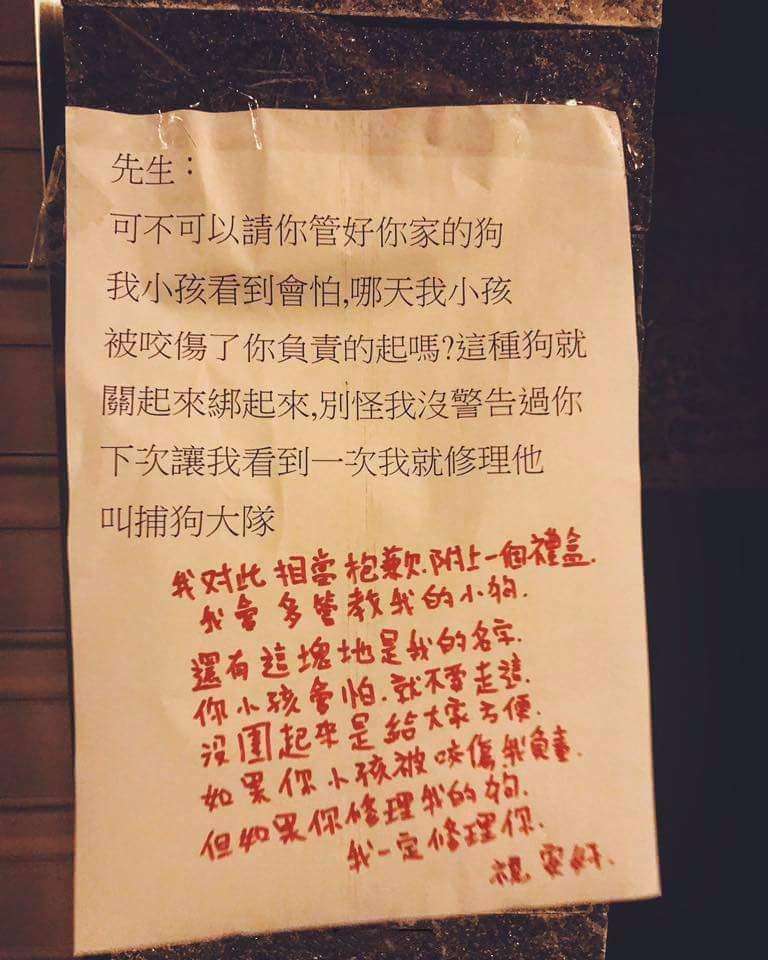 先生：
可不可以請你管好你家的狗
我小孩看到會怕,哪天我小孩
被咬傷了你負責的起嗎?這種狗就
關起來綁起來,別怪我沒警告過你
下次讓我看到一次我就修理他
叫捕狗大隊
我対此相當抱歉.附上一個禮盒.
我會多管教我的小狗.
還有這塊地是我的名字.
你小孩會怕.就不要走這.
沒圍起來是給大家方便.
如果你小孩被咬傷我負責.
但如果你修理我的狗.
我一定修理你.
祝安好.